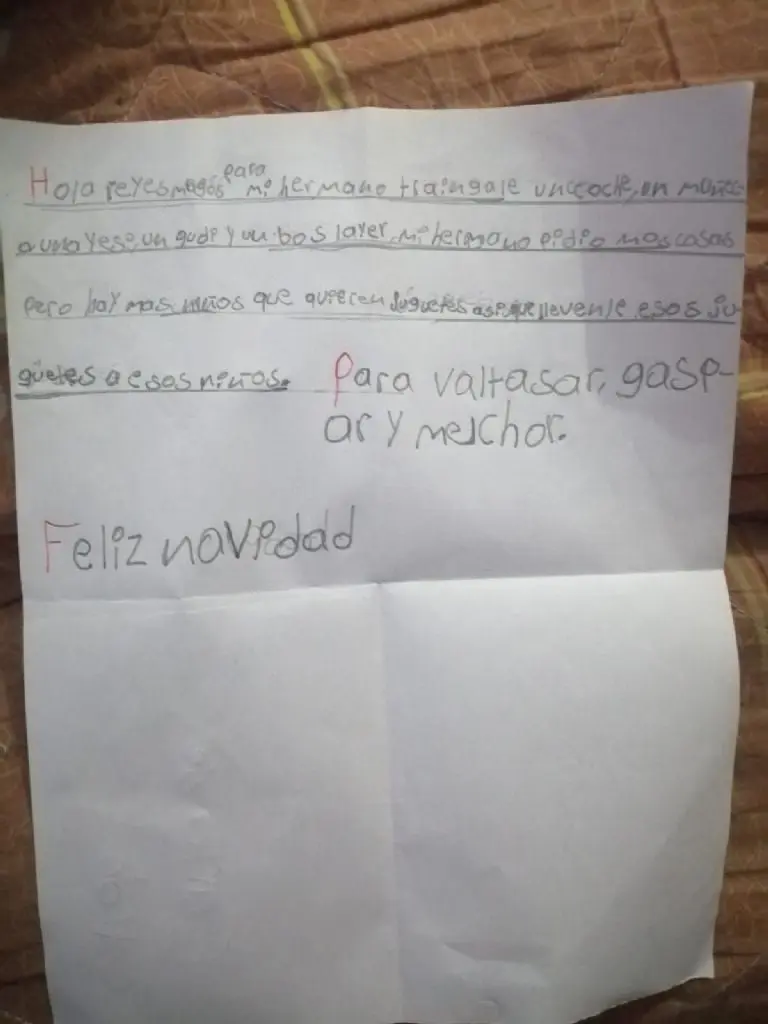 Hola reyes magos para mi hermano traingale un coche, un muñec
o una yese, un gudi y un bos layer, mi hermano pidio mas cosas
pero hay mas niños que quieren juguetes asi que llevenle esos ju-
guetes a esos niños.
Para valtasar, gasp-
ar y melchor.
Feliz navidad